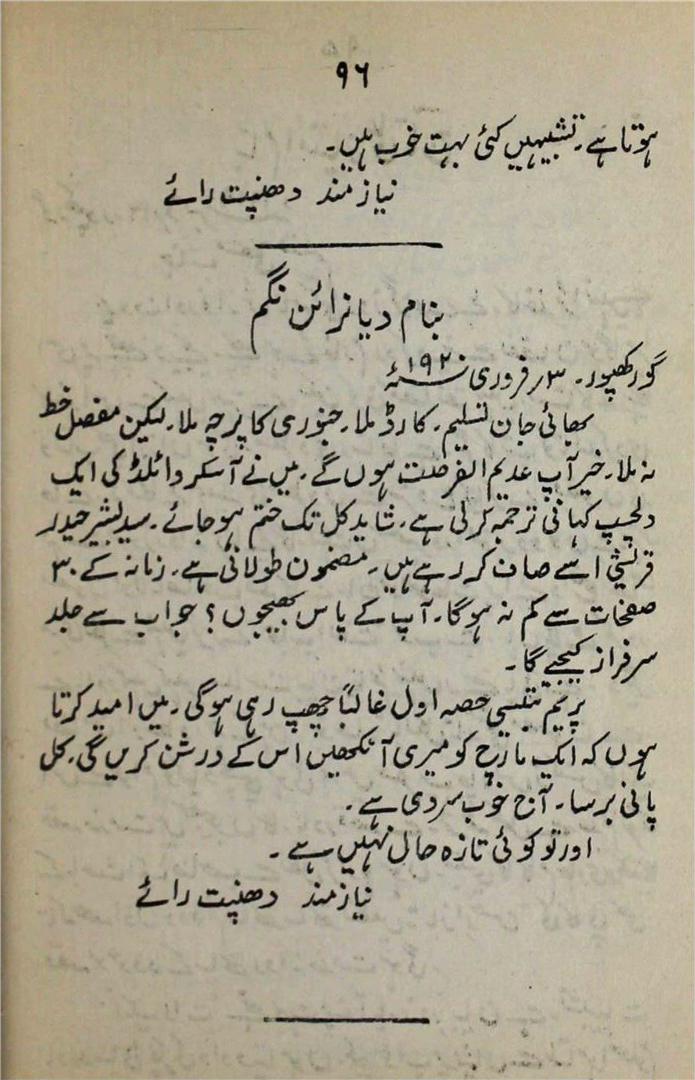 ۹۶
ہوتا ہے۔ تشبیہیں کئی بہت خوب ہیں۔
نیازمند دھنپت رائے
بنام دیا نرائن نگم
گورکھپور۔ ۳؍ فروری ۱۹۲۰ء
بھائی جان تسلیم۔ کارڈ ملا۔ جنوری کا پرچہ ملا۔ لیکن مفصل خط
نہ ملا۔ خیر آپ عدیم الفرصت ہوں گے۔ میں نے آسکر وائلڈ کی ایک
دلچسپ کہانی ترجمہ کر لی ہے۔ شاید کل تک ختم ہو جائے۔ سید بشیر حیدر
قریشی اسے صاف کر رہے ہیں۔ مضمون طولانی ہے۔ زمانہ کے ۳۰
صفحات سے کم نہ ہوگا۔ آپ کے پاس بھیجوں؟ جواب سے جلد
سرفراز کیجیے گا۔
پریم بتیسی حصہ اول غالباً چھپ رہی ہوگی۔ میں امید کرتا
ہوں کہ ایک مارچ کو میری آنکھیں اس کے درشن کریں گی۔ کل
پانی برسا۔ آج خوب سردی ہے۔
اور تو کوئی تازہ حال نہیں ہے۔
نیازمند دھنپت رائے